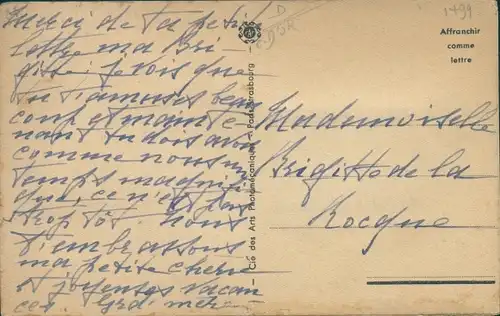 Merci de ta petite
lettre ma Bri-
gitte, je vois que
tu t'amuses beau
coup et mainte
nant tu dois avoir
comme nous un
temps magnifi
que, ce n'est pas
trop tôt. Nous
t'embrassons
ma petite cherie
et joyeuses vacan
ces. Grd. mère
Cie des Arts Photomécaniques - Paris-Strasbourg
1499
Affranchir
comme
lettre
Mademoiselle
Brigitte de la
Rocque